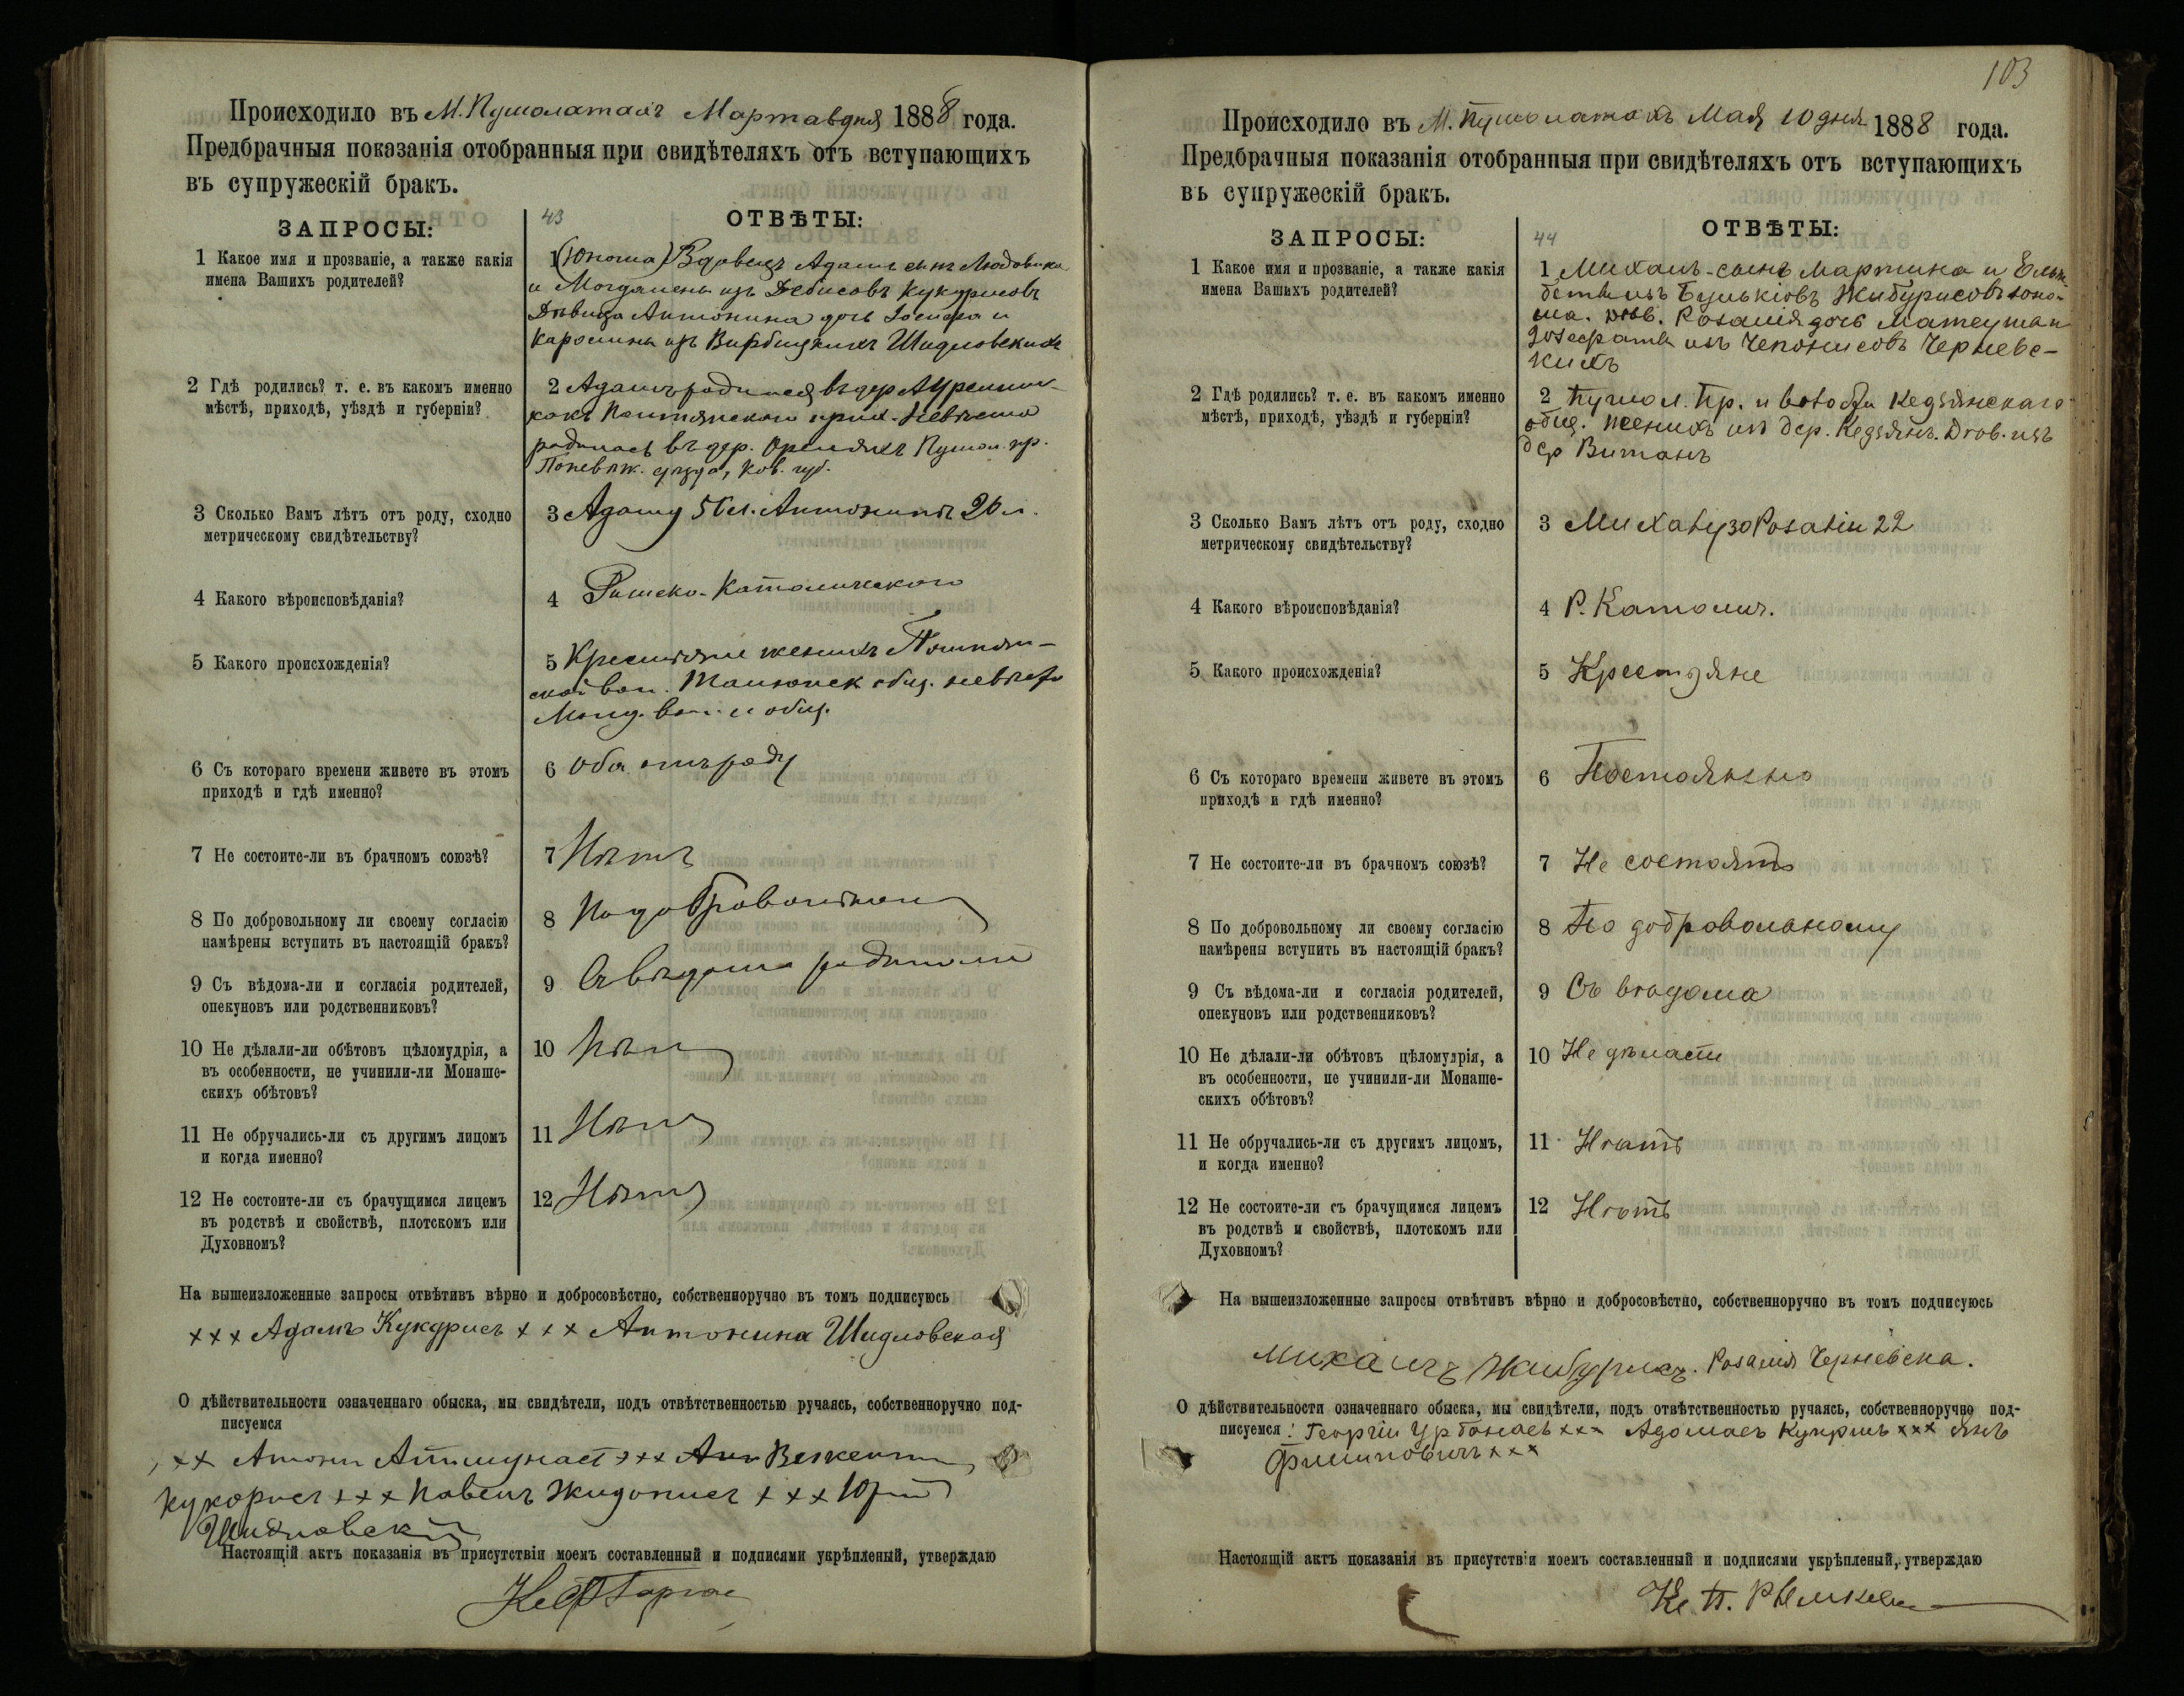 Происходило въ М. Пушолатахъ Марта дня 1888 года.
Предбрачныя показанія отобранныя при свидѣтеляхъ отъ вступающихъ
въ супружескій бракъ.
ЗАПРОСЫ:
43
ОТВѢТЫ:
1 Какое имя и прозваніе, а также какія
имена Вашихъ родителей?
1 (Юноша) Вдовецъ Адамъ сынъ Людовика
и Магдалены изъ Кукурисовъ
Дѣвица Антонина дочь Іосифа и
Каролины изъ Вирбицкихъ Шидловскихъ
2 Гдѣ родились? т. е. въ какомъ именно
мѣстѣ, приходѣ, уѣздѣ и губерніи?
2 Адамъ родился въ дер.
прих. Невѣста
родилась въ дер. Пушол. пр.
Поневѣж. уѣзда, Ков. губ.
3 Сколько Вамъ лѣтъ отъ роду, сходно
метрическому свидѣтельству?
3 Адаму 56 л. Антонинѣ 26 л.
4 Какого вѣроисповѣданія?
4 Римско-Католическаго
5 Какого происхожденія?
5 Крестьяне женихъ
вол. общ. невѣста
вол. и общ.
6 Съ котораго времени живете въ этомъ
приходѣ и гдѣ именно?
6 Оба отъ роду
7 Не состоите-ли въ брачномъ союзѣ?
7 Нѣтъ
8 По добровольному ли своему согласію
намѣрены вступить въ настоящій бракъ?
8 По добровольному
9 Съ вѣдома-ли и согласія родителей,
опекуновъ или родственниковъ?
9 Съ вѣдома родителей
10 Не дѣлали-ли обѣтовъ цѣломудрія, а
въ особенности, не учинили-ли Монаше-
скихъ обѣтовъ?
10 Нѣтъ
11 Не обручались-ли съ другимъ лицомъ
и когда именно?
11 Нѣтъ
12 Не состоите-ли съ брачущимся лицемъ
въ родствѣ и свойствѣ, плотскомъ или
Духовномъ?
12 Нѣтъ
На вышеизложенные запросы отвѣтивъ вѣрно и добросовѣстно, собственноручно въ томъ подписуюсь
+++ Адамъ Кукурисъ +++ Антонина Шидловская
О дѣйствительности означеннаго обыска, мы свидѣтели, подъ отвѣтственностью ручаясь, собственноручно под-
писуемся
+++
+++ Павелъ Жидонисъ +++ Юрій
Шидловскій
Настоящій актъ показанія въ присутствіи моемъ составленный и подписями укрѣпленый, утверждаю
103
Происходило въ М. Пушолатахъ Мая 10 дня 1888 года.
Предбрачныя показанія отобранныя при свидѣтеляхъ отъ вступающихъ
въ супружескій бракъ.
ЗАПРОСЫ:
44
ОТВѢТЫ:
1 Какое имя и прозваніе, а также какія
имена Вашихъ родителей?
1 Михаилъ сынъ Мартина и Ельж-
беты изъ Бунькісовъ Жибурисовъ юно-
ша. Розалія дочь Матеуша и
Іозефаты изъ Чепонисовъ Черневс-
кихъ
2 Гдѣ родились? т. е. въ какомъ именно
мѣстѣ, приходѣ, уѣздѣ и губерніи?
2 Пушол. Пр. и волости Кедзянскаго
общ. женихъ изъ дер. Кедзянъ. Дѣв. изъ
дер Витанъ
3 Сколько Вамъ лѣтъ отъ роду, сходно
метрическому свидѣтельству?
3 Михаилу 30 Розаліи 22
4 Какого вѣроисповѣданія?
4 Р. Католич.
5 Какого происхожденія?
5 Крестьяне
6 Съ котораго времени живете въ этомъ
приходѣ и гдѣ именно?
6 Постоянно
7 Не состоите-ли въ брачномъ союзѣ?
7 Не состоятъ
8 По добровольному ли своему согласію
намѣрены вступить въ настоящій бракъ?
8 По добровольному
9 Съ вѣдома-ли и согласія родителей,
опекуновъ или родственниковъ?
9 Съ вѣдома
10 Не дѣлали-ли обѣтовъ цѣломудрія, а
въ особенности, не учинили-ли Монаше-
скихъ обѣтовъ?
10 Не дѣлали
11 Не обручались-ли съ другимъ лицомъ,
и когда именно?
11 Нѣтъ
12 Не состоите-ли съ брачущимся лицемъ
въ родствѣ и свойствѣ, плотскомъ или
Духовномъ?
12 Нѣтъ
На вышеизложенные запросы отвѣтивъ вѣрно и добросовѣстно, собственноручно въ томъ подписуюсь
Михаилъ Жибурисъ. Розалія Черневска.
О дѣйствительности означеннаго обыска, мы свидѣтели, подъ отвѣтственностью ручаясь, собственноручно под-
писуемся: Георгій Урбонасъ +++ Адомасъ Куприсъ +++ Янъ
Филиповичъ +++
Настоящій актъ показанія въ присутствіи моемъ составленный и подписями укрѣпленый, утверждаю
Кс. П.